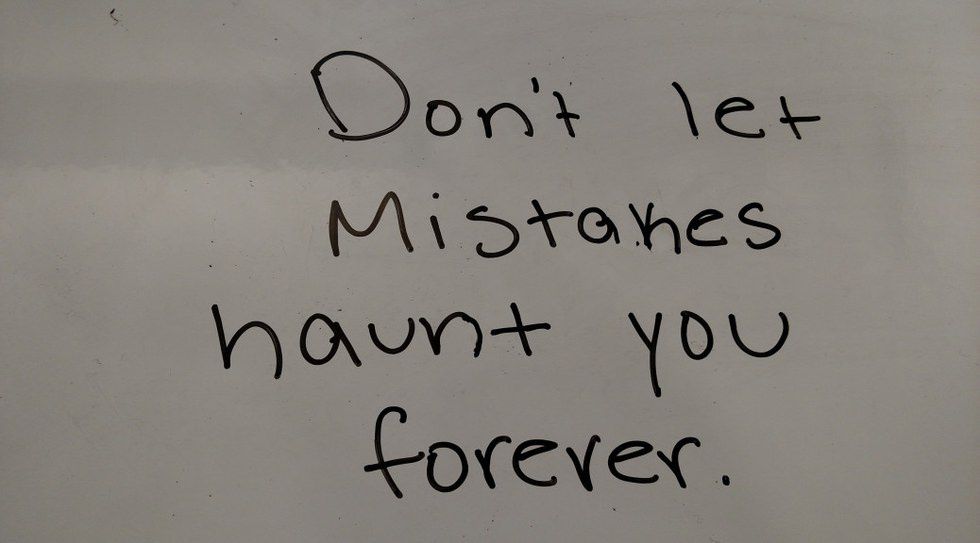 Don't let
Mistakes
haunt you
forever.